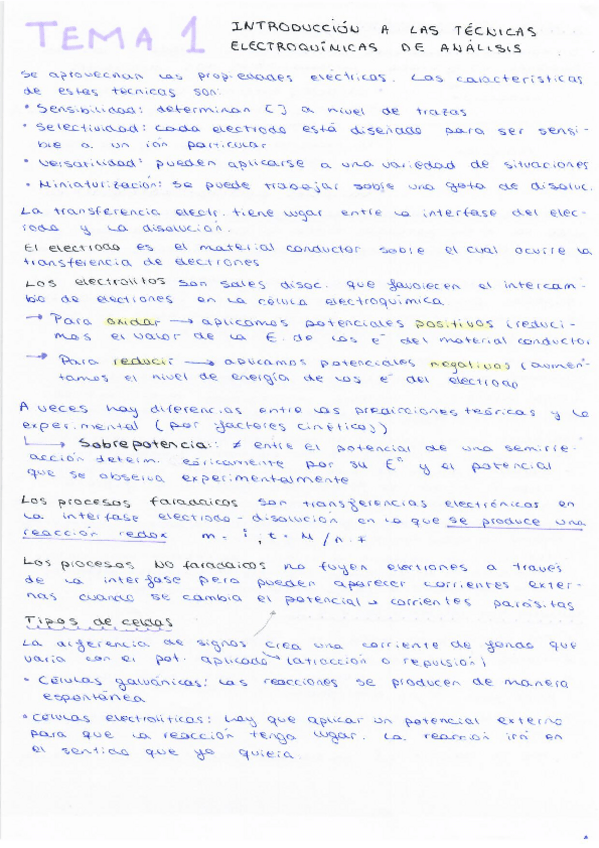 TEMA 1 INTRODUCCIÓN A LAS TÉCNICAS
ELECTROQUÍMICAS DE ANÁLISIS
Se aprovechan las propiedades eléctricas. Las características
de estas técnicas son:
• Sensibilidad: determinan [ ] a nivel de trazas
• Selectividad: cada electrodo está diseñado para ser sensi-
ble a un ión particular
• Versatilidad: pueden aplicarse a una variedad de situaciones
• Miniaturización: se puede trabajar sobre una gota de disoluc.
La transferencia electr. tiene lugar entre la interfase del elec-
trodo y la disolución.
El electrodo es el material conductor sobre el cual ocurre la
transferencia de electrones
Los electrolitos son sales disoc. que favorecen el intercam-
bio de electrones en la célula electroquímica.
→ Para oxidar → aplicamos potenciales positivos (reduci-
mos el valor de la E. de los e⁻ del material conductor
→ Para reducir → aplicamos potenciales negativos (aumen-
tamos el nivel de energía de los e⁻ del electrodo
A veces hay diferencias entre las predicciones teóricas y lo
experimental (por factores cinéticos)
→ Sobrepotencia: ≠ entre el potencial de una semirre-
acción determ. teóricamente por su E° y el potencial
que se observa experimentalmente
Los procesos faradaicos son transferencias electrónicas en
la interfase electrodo-disolución en la que se produce una
reacción redox m = i · t · M / n · F
Los procesos NO faradaicos no fluyen electrones a través
de la interfase pero pueden aparecer corrientes exter-
nas cuando se cambia el potencial → corrientes parásitas
Tipos de celdas
La diferencia de signos crea una corriente de fondo que
varía con el pot. aplicado (atracción o repulsión)
• Células galvánicas: las reacciones se producen de manera
espontánea
• Células electrolíticas: hay que aplicar un potencial externo
para que la reacción tenga lugar. La reacción irá en
el sentido que yo quiera.